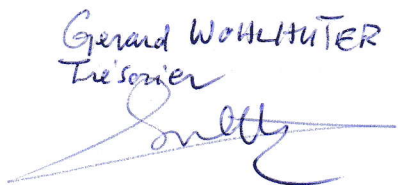 Gerard WOHLHUTER
Trésorier